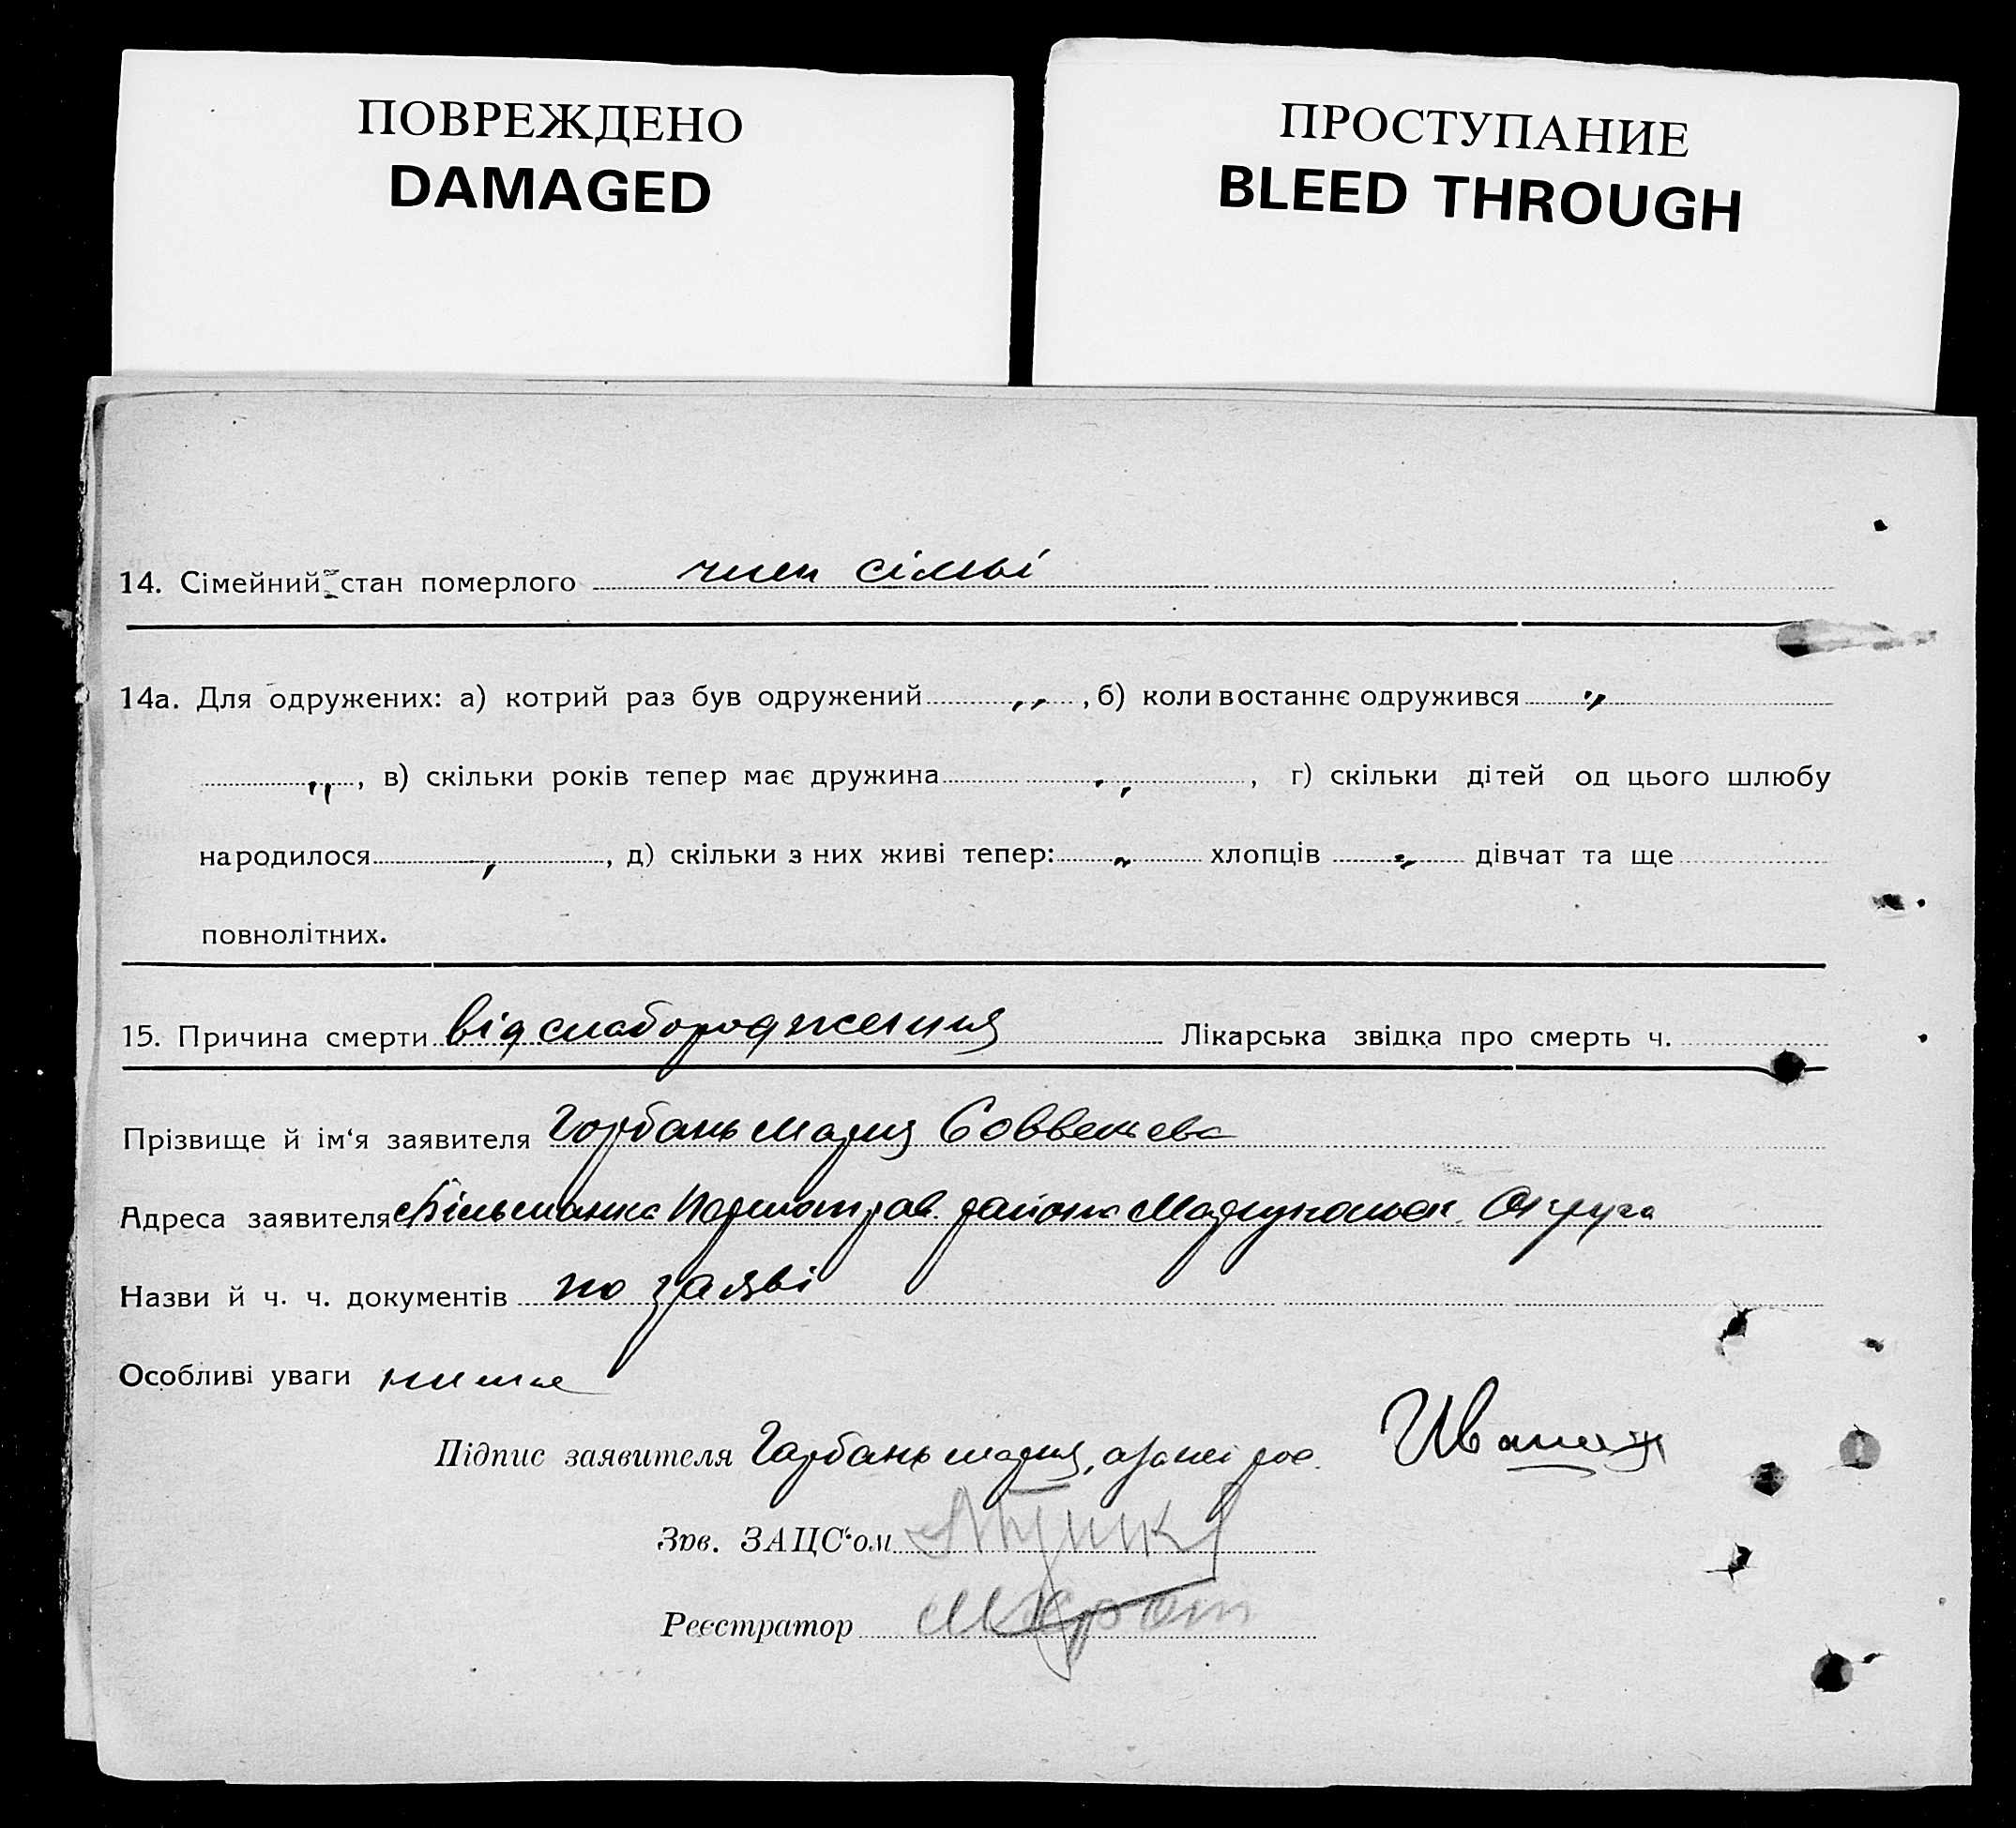 ПОВРЕЖДЕНО
DAMAGED
ПРОСТУПАНИЕ
BLEED THROUGH
14. Сімейний стан померлого член сімьі
14а. Для одружених: а) котрий раз був одружений „ , б) коли востаннє одружився „
„ , в) скільки років тепер має дружина „ , г) скільки дітей од цього шлюбу
народилося „ , д) скільки з них живі тепер: „ хлопців „ дівчат та ще
повнолітних.
15. Причина смерти від слабородження Лікарська звідка про смерть ч.
Прізвище й ім‘я заявителя Горбань Мария
Адреса заявителя района Округа
Назви й ч. ч. документів по заяві
Особливі уваги
Підпис заявителя Горбань Мария,
Зав. ЗАЦС‘ом
Реєстратор